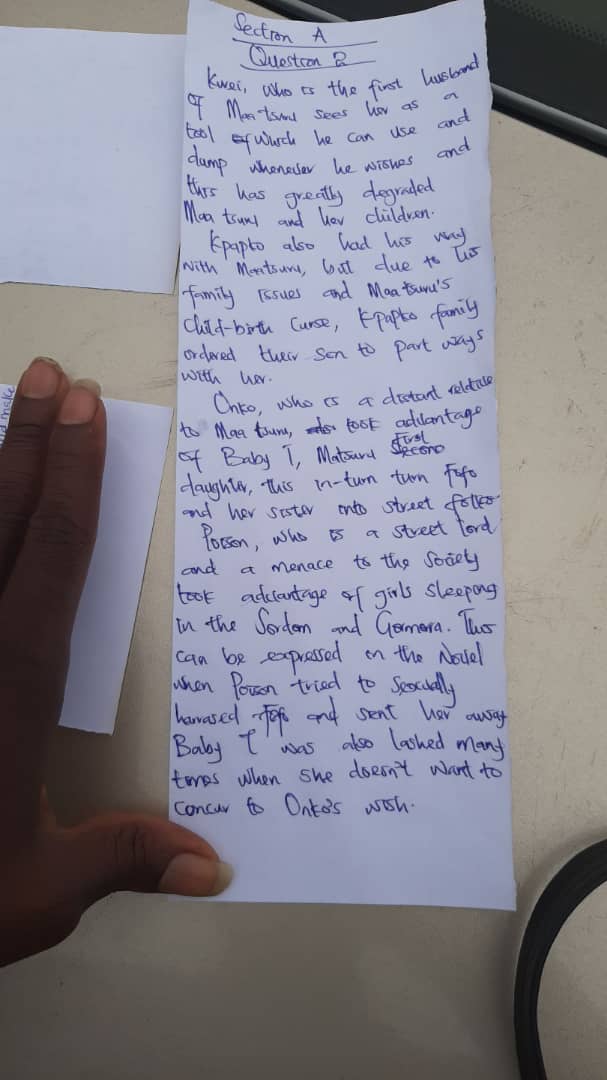 Section A
Question 2
Kwei, who is the first husband
of Maa tsuru sees her as a
tool of which he can use and
dump whenever he wishes and
this has greatly degraded
Maa tsuru and her children.
Kpapko also had his way
with Maatsuru, but due to his
family issues and Maa tsuru's
child-birth curse, Kpapko family
ordered their son to part ways
with her.
Onko, who is a distant relative
to Maa tsuru, took advantage
of Baby T, Matsuru First
daughter, this in-turn turn Fofo
and her sister into street
Poison, who is a street lord
and a menace to the society
took advantage of girls sleeping
in the Sordom and Gomora. This
can be expressed in the Novel
when Poison tried to Sexually
harrased Fofo and sent her away
Baby T was also lashed many
times when she doesn't want to
concur to Onko's wish.
make